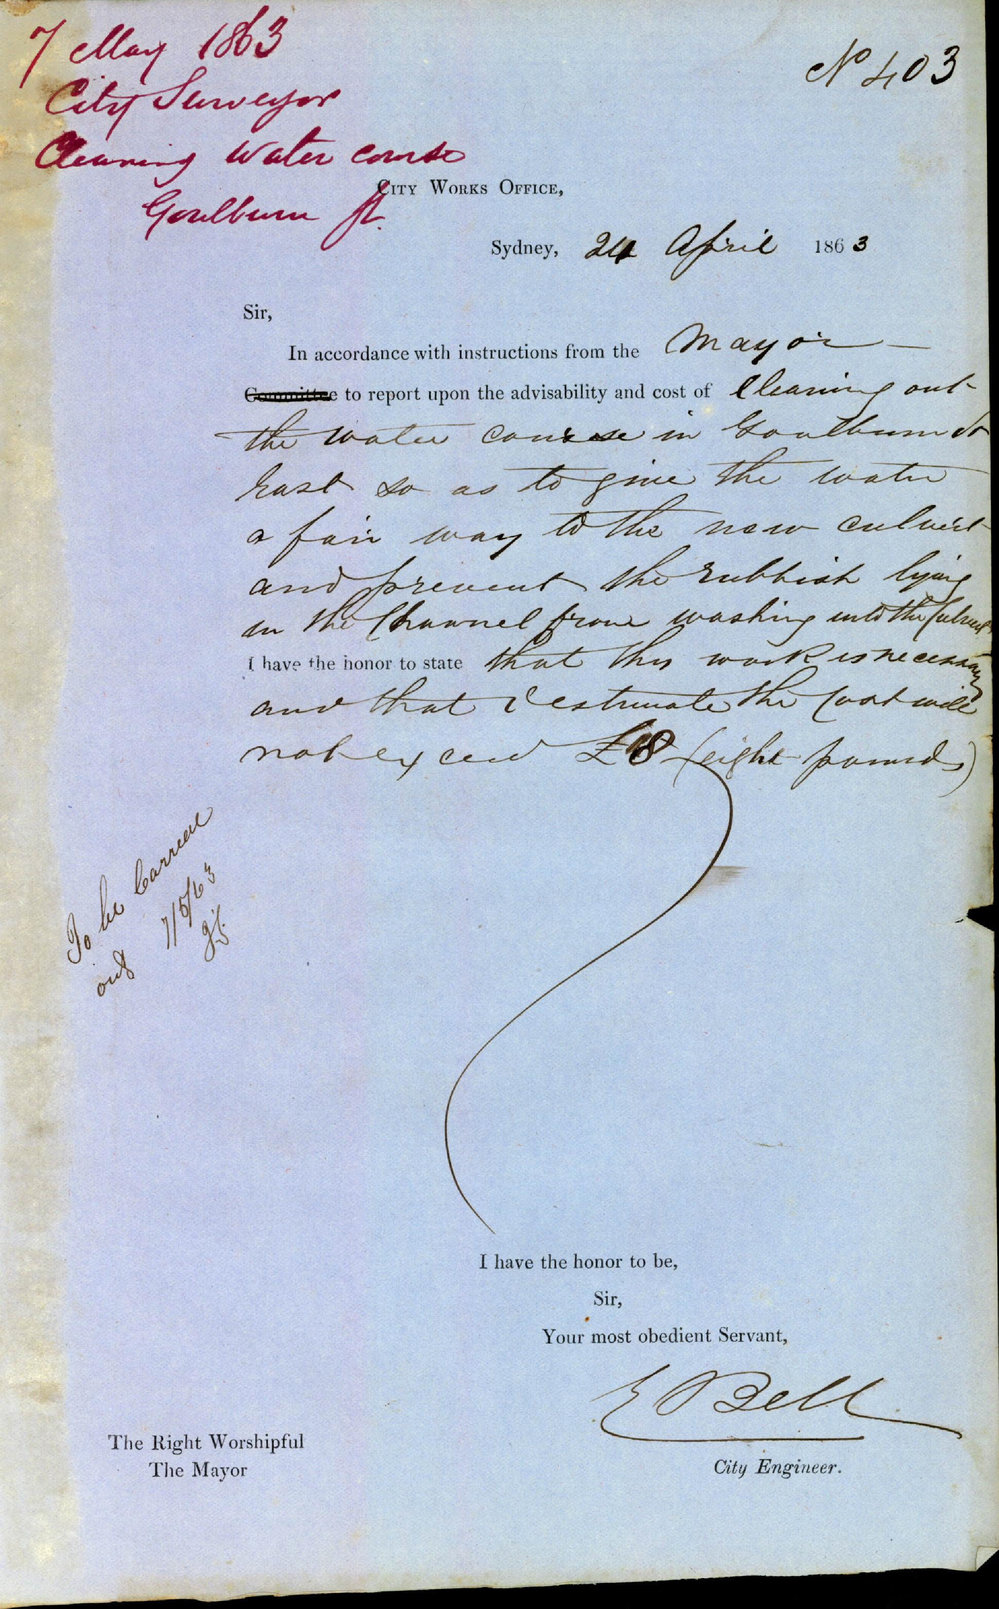 7 May 1863
City Surveyor
Cleaning Water course
Goulburn St.
No 403
CITY WORKS OFFICE,
Sydney, 24 April 1863
Sir,
In accordance with instructions from the Mayor —
Committee to report upon the advisability and cost of Cleaning out
the water course in Goulburn St
East so as to give the water
a fair way to the new culvert
and prevent the rubbish lying
in the Channel from washing into the Culvert
I have the honor to state that this work is necessary
and that I estimate the Cost will
not exceed £8 (eight pounds)
To be Carried
out 7/5/63
I have the honor to be,
Sir,
Your most obedient Servant,
E Bell
City Engineer.
The Right Worshipful
The Mayor